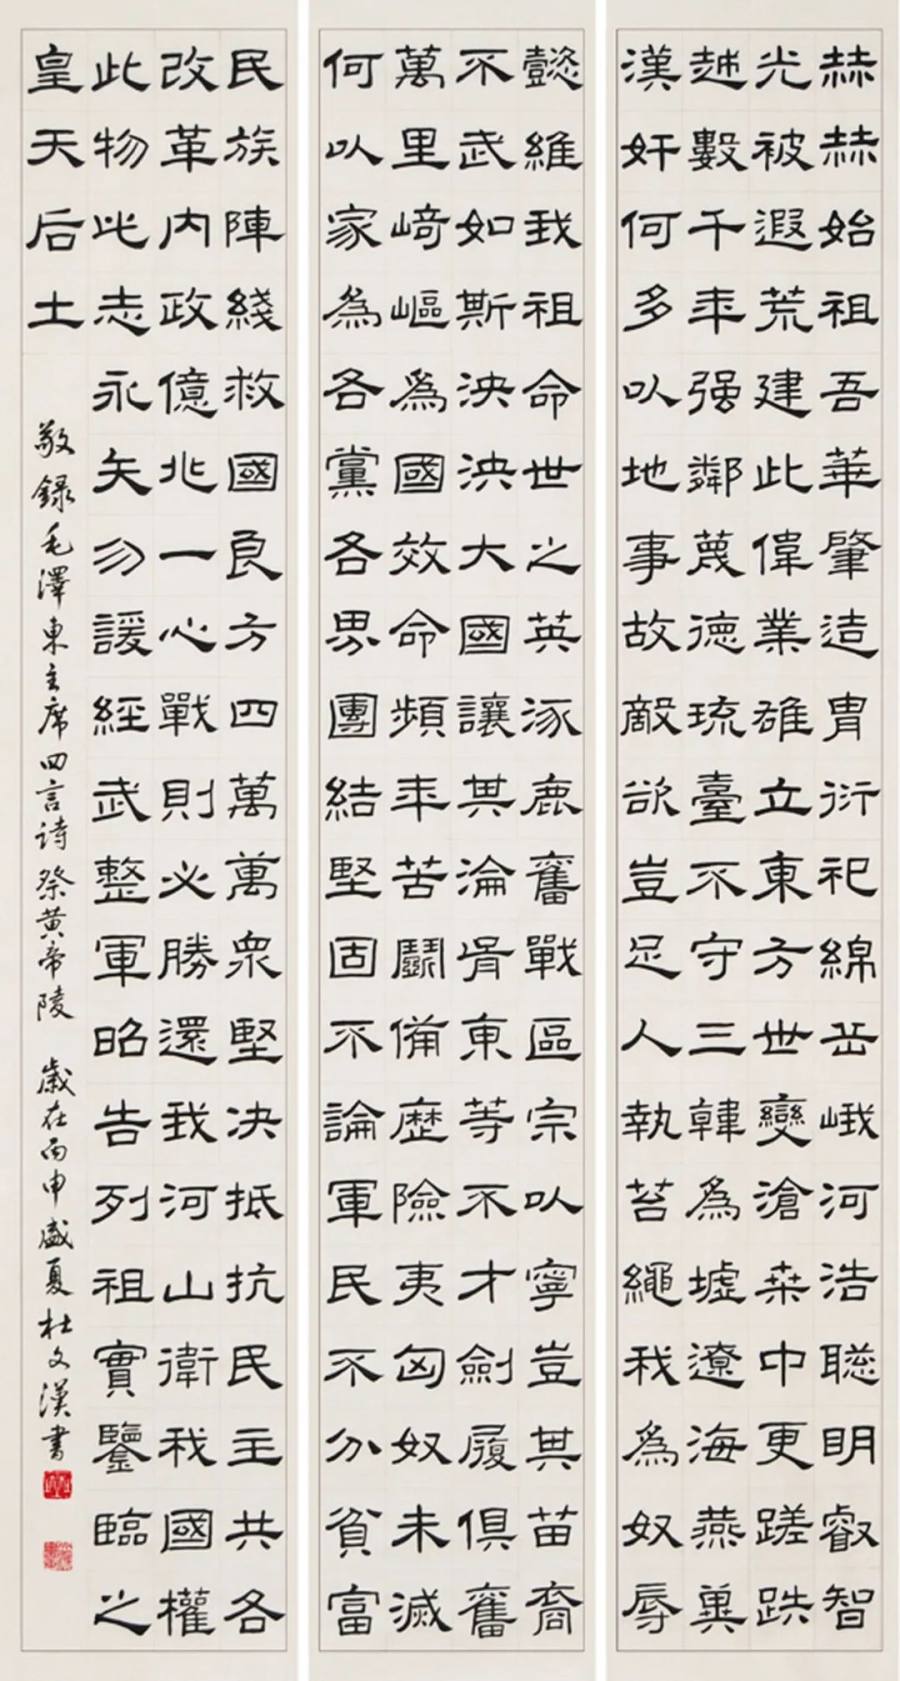 赫赫始祖吾華肇造胄衍祀綿岳峨河浩聰明叡智
光被遐荒建此偉業雄立東方世變滄桑中更蹉跌
越數千年强鄰蔑德琉臺不守三韓為墟遼海燕冀
漢奸何多以地事故敵欲豈足人執苔繩我為奴辱
懿維我祖命世之英涿鹿奮戰區宗以寧豈其苗裔
不武如斯泱泱大國讓其淪胥東等不才劍履俱奮
萬里崎嶇爲國效命頻年苦鬬備歷險夷匈奴未滅
何以家為各黨各界團結堅固不論軍民不分貧富
民族陣綫救國良方四萬萬衆堅决抵抗民主共各
改革内政億兆一心戰則必勝還我河山衛我國權
此物此志永矢勿諼經武整軍昭告列祖實鑒臨之
皇天后土
敬錄毛澤東主席四言詩祭黄帝陵 歲在丙申盛夏杜文漢書